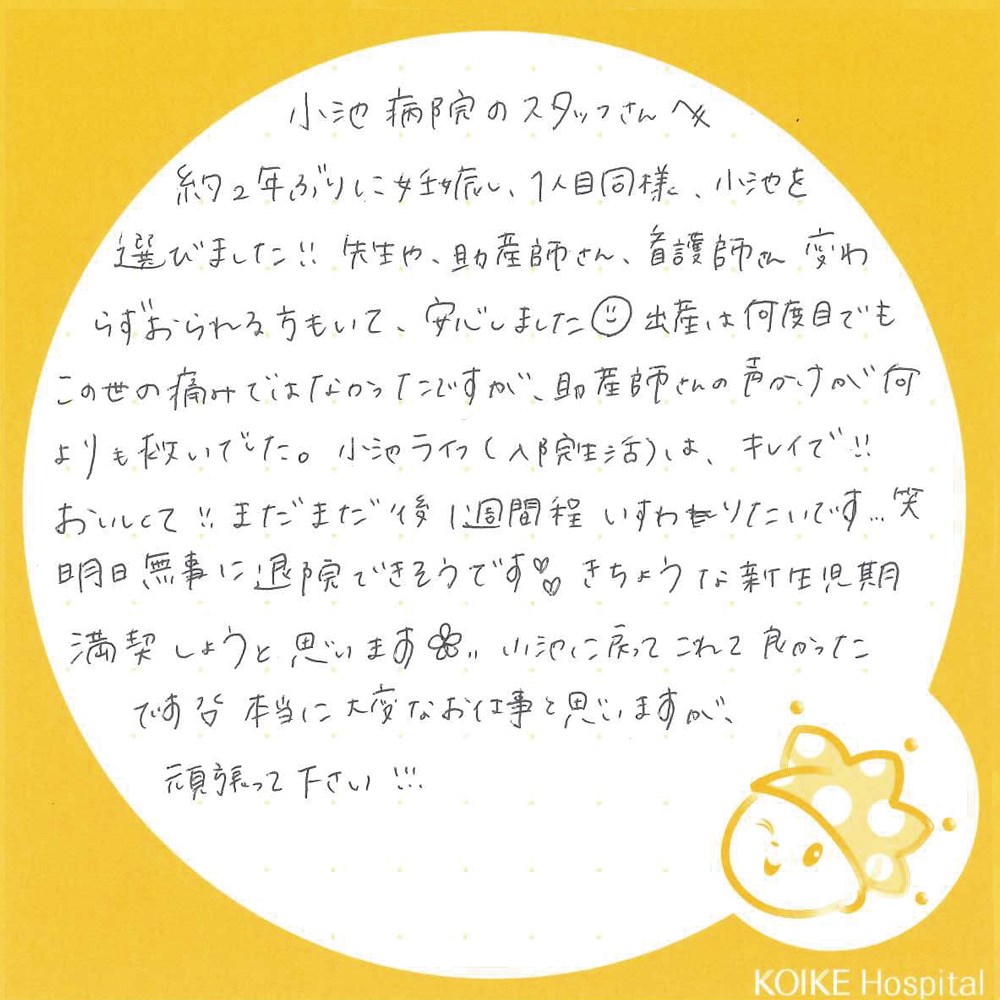 小池病院のスタッフさんへ
約2年ぶりに妊娠し、1人目同様、小池を
選びました!! 先生や、助産師さん、看護師さん 変わ
らずおられる方もいて、安心しました☺ 出産は何度目でも
この世の痛みではなかったですが、助産師さんの声かけが何
よりも救いでした。小池ライフ(入院生活)は、キレイで!!
おいしくて!! まだまだ後1週間程いすわりたいです...笑
明日無事に退院できそうです♡ きちょうな新生児期
満喫しようと思います✿.. 小池に戻ってこれて良かった
です 本当に大変なお仕事と思いますが、
頑張って下さい!!!
KOIKE Hospital